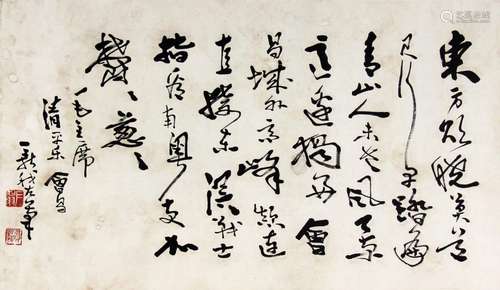 東方欲曉莫道
君行早踏遍
青山人未老風景
這邊獨好會
昌城外高峰顛連
直接东溟战士
指看南粤更加
鬱〻葱〻
毛主席
清平乐 會昌
新我左筆